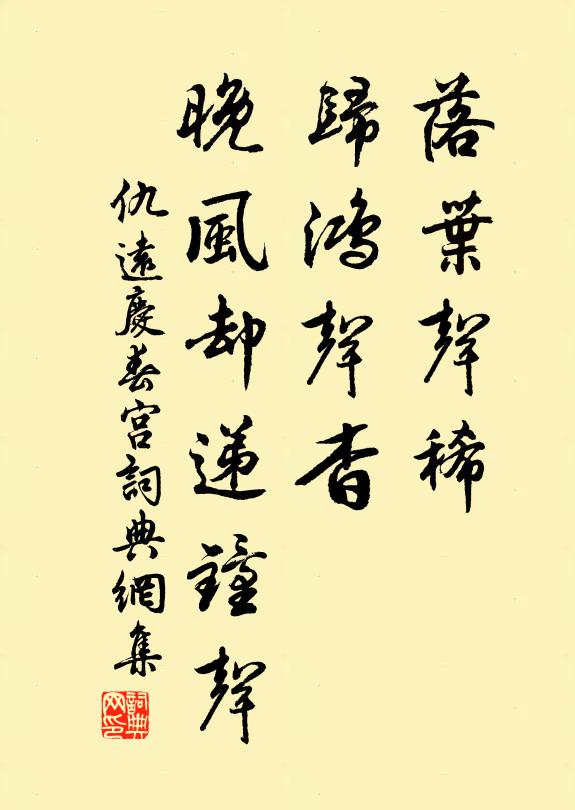 落葉聲稀
歸鴻聲杳
晚風却遞鐘聲
仇遠慶春宮詞典網集
詞典网印